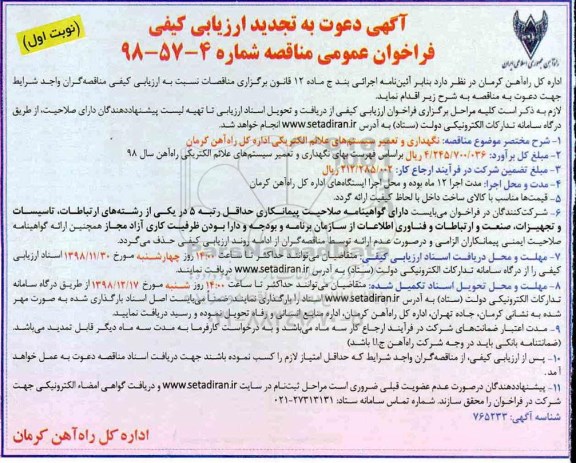 آگهی دعوت به تجدید ارزیابی کیفی
فراخوان عمومی مناقصه شماره ۴-۵۷-۹۸
(نوبت اول)
راه‌آهن جمهوری اسلامی ایران
اداره کل راه‌آهن کرمان در نظر دارد بنابر آئین‌نامه اجرائی بند ج ماده ۱۲ قانون برگزاری مناقصات نسبت به ارزیابی کیفی مناقصه‌گران واجد شرایط
جهت دعوت به مناقصه به شرح زیر اقدام نماید.
لازم به ذکر است کلیه مراحل برگزاری فراخوان ارزیابی کیفی از دریافت و تحویل اسناد ارزیابی تا تهیه لیست پیشنهاددهندگان دارای صلاحیت، از طریق
درگاه سامانه تدارکات الکترونیکی دولت (ستاد) به آدرس www.setadiran.ir انجام خواهد شد.
۱- شرح مختصر موضوع مناقصه: نگهداری و تعمیر سیستم‌های علائم الکتریکی اداره کل راه‌آهن کرمان
۲- مبلغ کل برآورد: ۴/۲۴۵/۷۰۰/۰۳۶ ریال براساس فهرست بهای نگهداری و تعمیر سیستم‌های علائم الکتریکی راه‌آهن سال ۹۸
۳- مبلغ تضمین شرکت در فرآیند ارجاع کار: ۲۱۲/۲۸۵/۰۰۲ ریال
۴- مدت و محل اجرا: مدت اجرا ۱۲ ماه بوده و محل اجرا ایستگاه‌های اداره کل راه‌آهن کرمان
۵- قیمت‌ها مناسب با کالای ساخت داخل با لحاظ کیفیت ارائه گردد.
۶- شرکت‌کنندگان در فراخوان می‌بایست دارای گواهینامه صلاحیت پیمانکاری حداقل رتبه ۵ در یکی از رشته‌های ارتباطات، تاسیسات
و تجهیزات، صنعت و ارتباطات و فناوری اطلاعات از سازمان برنامه و بودجه و دارا بودن ظرفیت کاری آزاد مجاز همچنین ارائه گواهینامه
صلاحیت ایمنی پیمانکاران الزامی و درصورت عدم ارائه توسط مناقصه‌گران از ادامه روند ارزیابی کیفی حذف می‌گردد.
۷- مهلت و محل دریافت اسناد ارزیابی کیفی: متقاضیان می‌توانند حداکثر تا ساعت ۱۴:۰۰ روز چهارشنبه مورخ ۱۳۹۸/۱۱/۳۰ اسناد ارزیابی
کیفی را از درگاه سامانه تدارکات الکترونیکی دولت (ستاد) به آدرس www.setadiran.ir دریافت نمایند.
۸- مهلت و محل تحویل اسناد تکمیل شده: متقاضیان می‌توانند حداکثر تا ساعت ۱۴:۰۰ روز شنبه مورخ ۱۳۹۸/۱۲/۱۷ از طریق درگاه سامانه
تدارکات الکترونیکی دولت (ستاد) به آدرس www.setadiran.ir اسناد را بارگذاری نمایند ضمناً می‌بایست اصل اسناد بارگذاری شده به صورت مهر
شده به نشانی کرمان، جاده تهران، اداره کل راه‌آهن کرمان، اداره منابع انسانی و رفاه تحویل نموده و رسید دریافت نمایید.
۹- مدت اعتبار ضمانت‌های شرکت در فرآیند ارجاع کار سه ماه می‌باشد که با درخواست کارفرما به مدت سه ماه دیگر قابل تمدید می‌باشد
(ضمانتنامه بانکی باید در وجه شرکت راه‌آهن ج.ا.ا باشد)
۱۰- پس از ارزیابی کیفی، از مناقصه‌گران واجد شرایط که حداقل امتیاز لازم را کسب نموده باشند جهت دریافت اسناد مناقصه دعوت به عمل خواهد
آمد.
۱۱- پیشنهاددهندگان درصورت عدم عضویت قبلی ضروری است مراحل ثبت‌نام در سایت www.setadiran.ir و دریافت گواهی امضاء الکترونیکی جهت
شرکت در فراخوان را محقق سازند. شماره تماس سامانه ستاد: ۲۷۳۱۳۱۳۱-۰۲۱
شناسه آگهی: ۷۶۵۲۳۳
اداره کل راه‌آهن کرمان